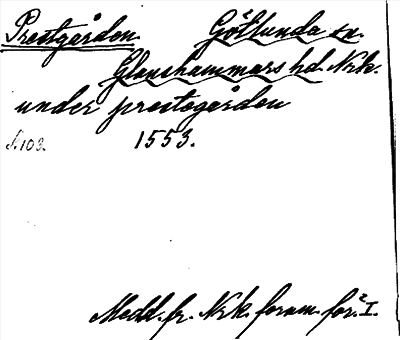 Prestgården. Götlunda sn.
Glanshammars hd. Nrk.
under prestegården
s. 103. 1553.
Medd. fr. Nrk. fornm. för. I.